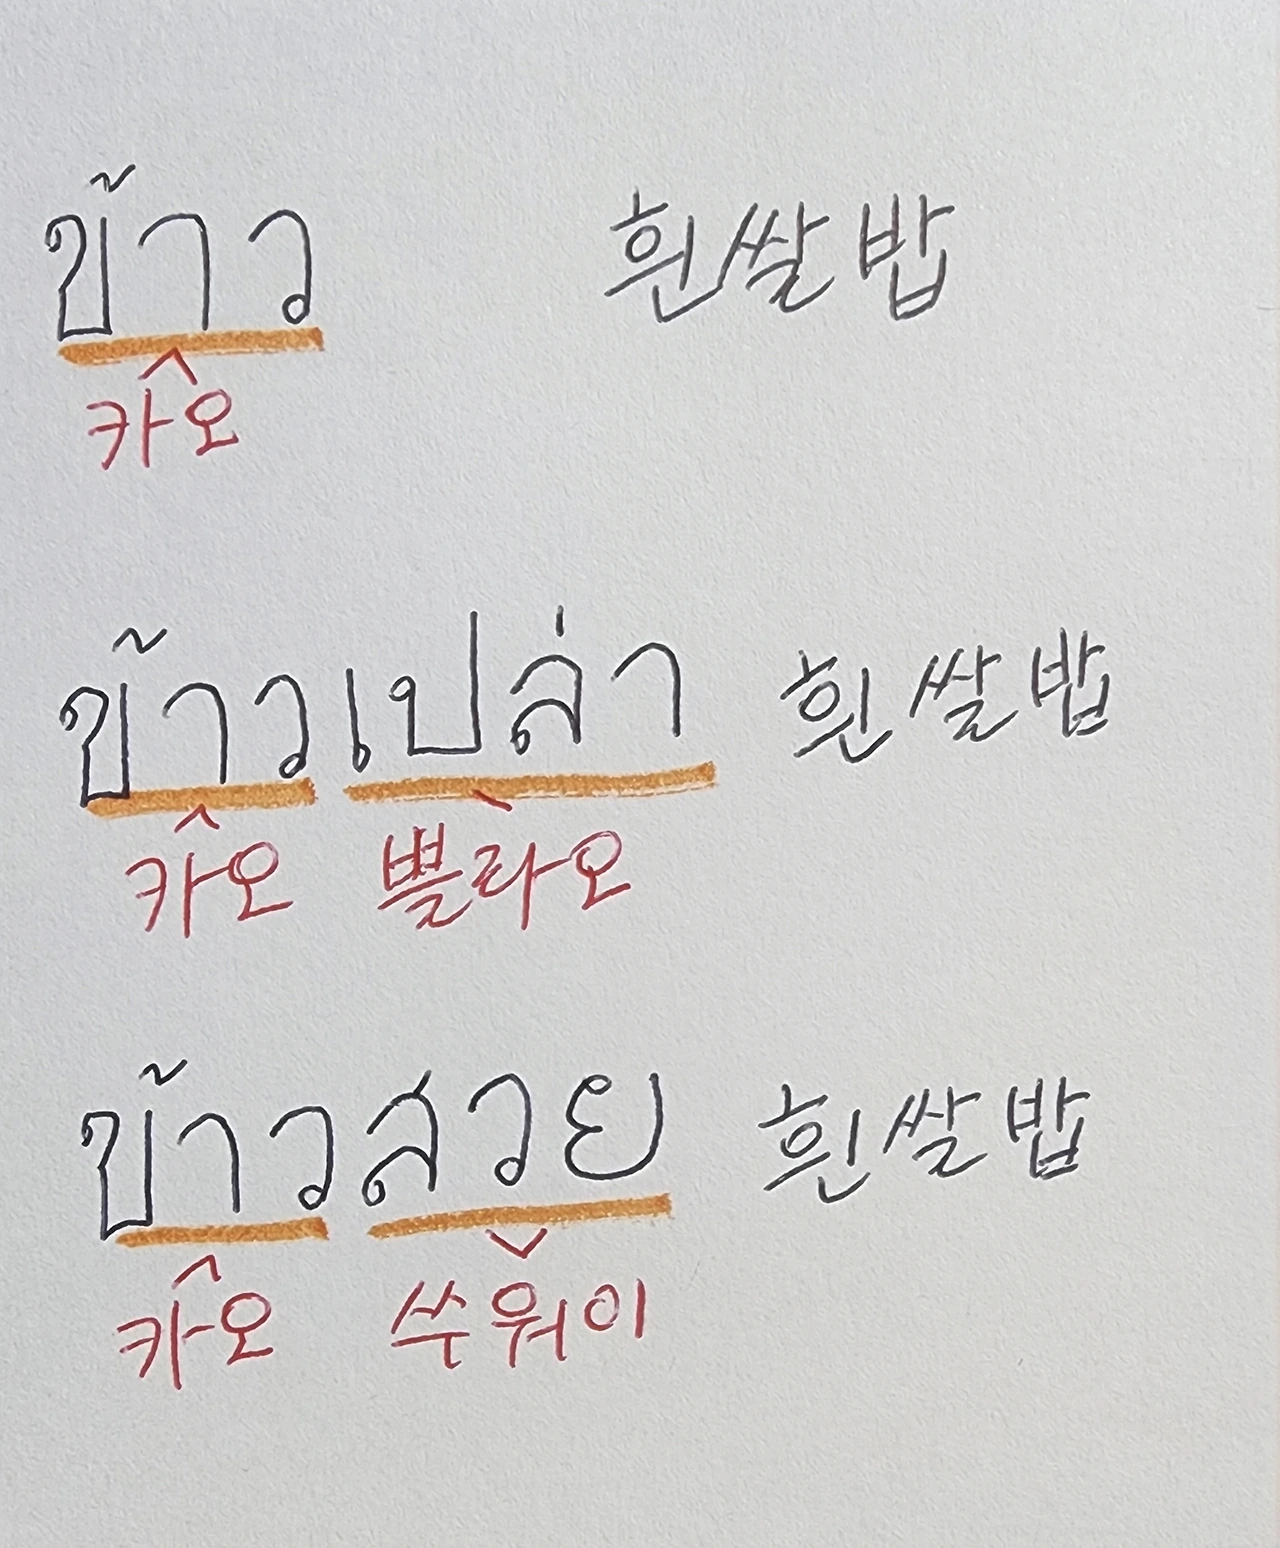 ข้าว 흰쌀밥
카오
ข้าวเปล่า 흰쌀밥
카오 쁠라오
ข้าวสวย 흰쌀밥
카오 쑤워이